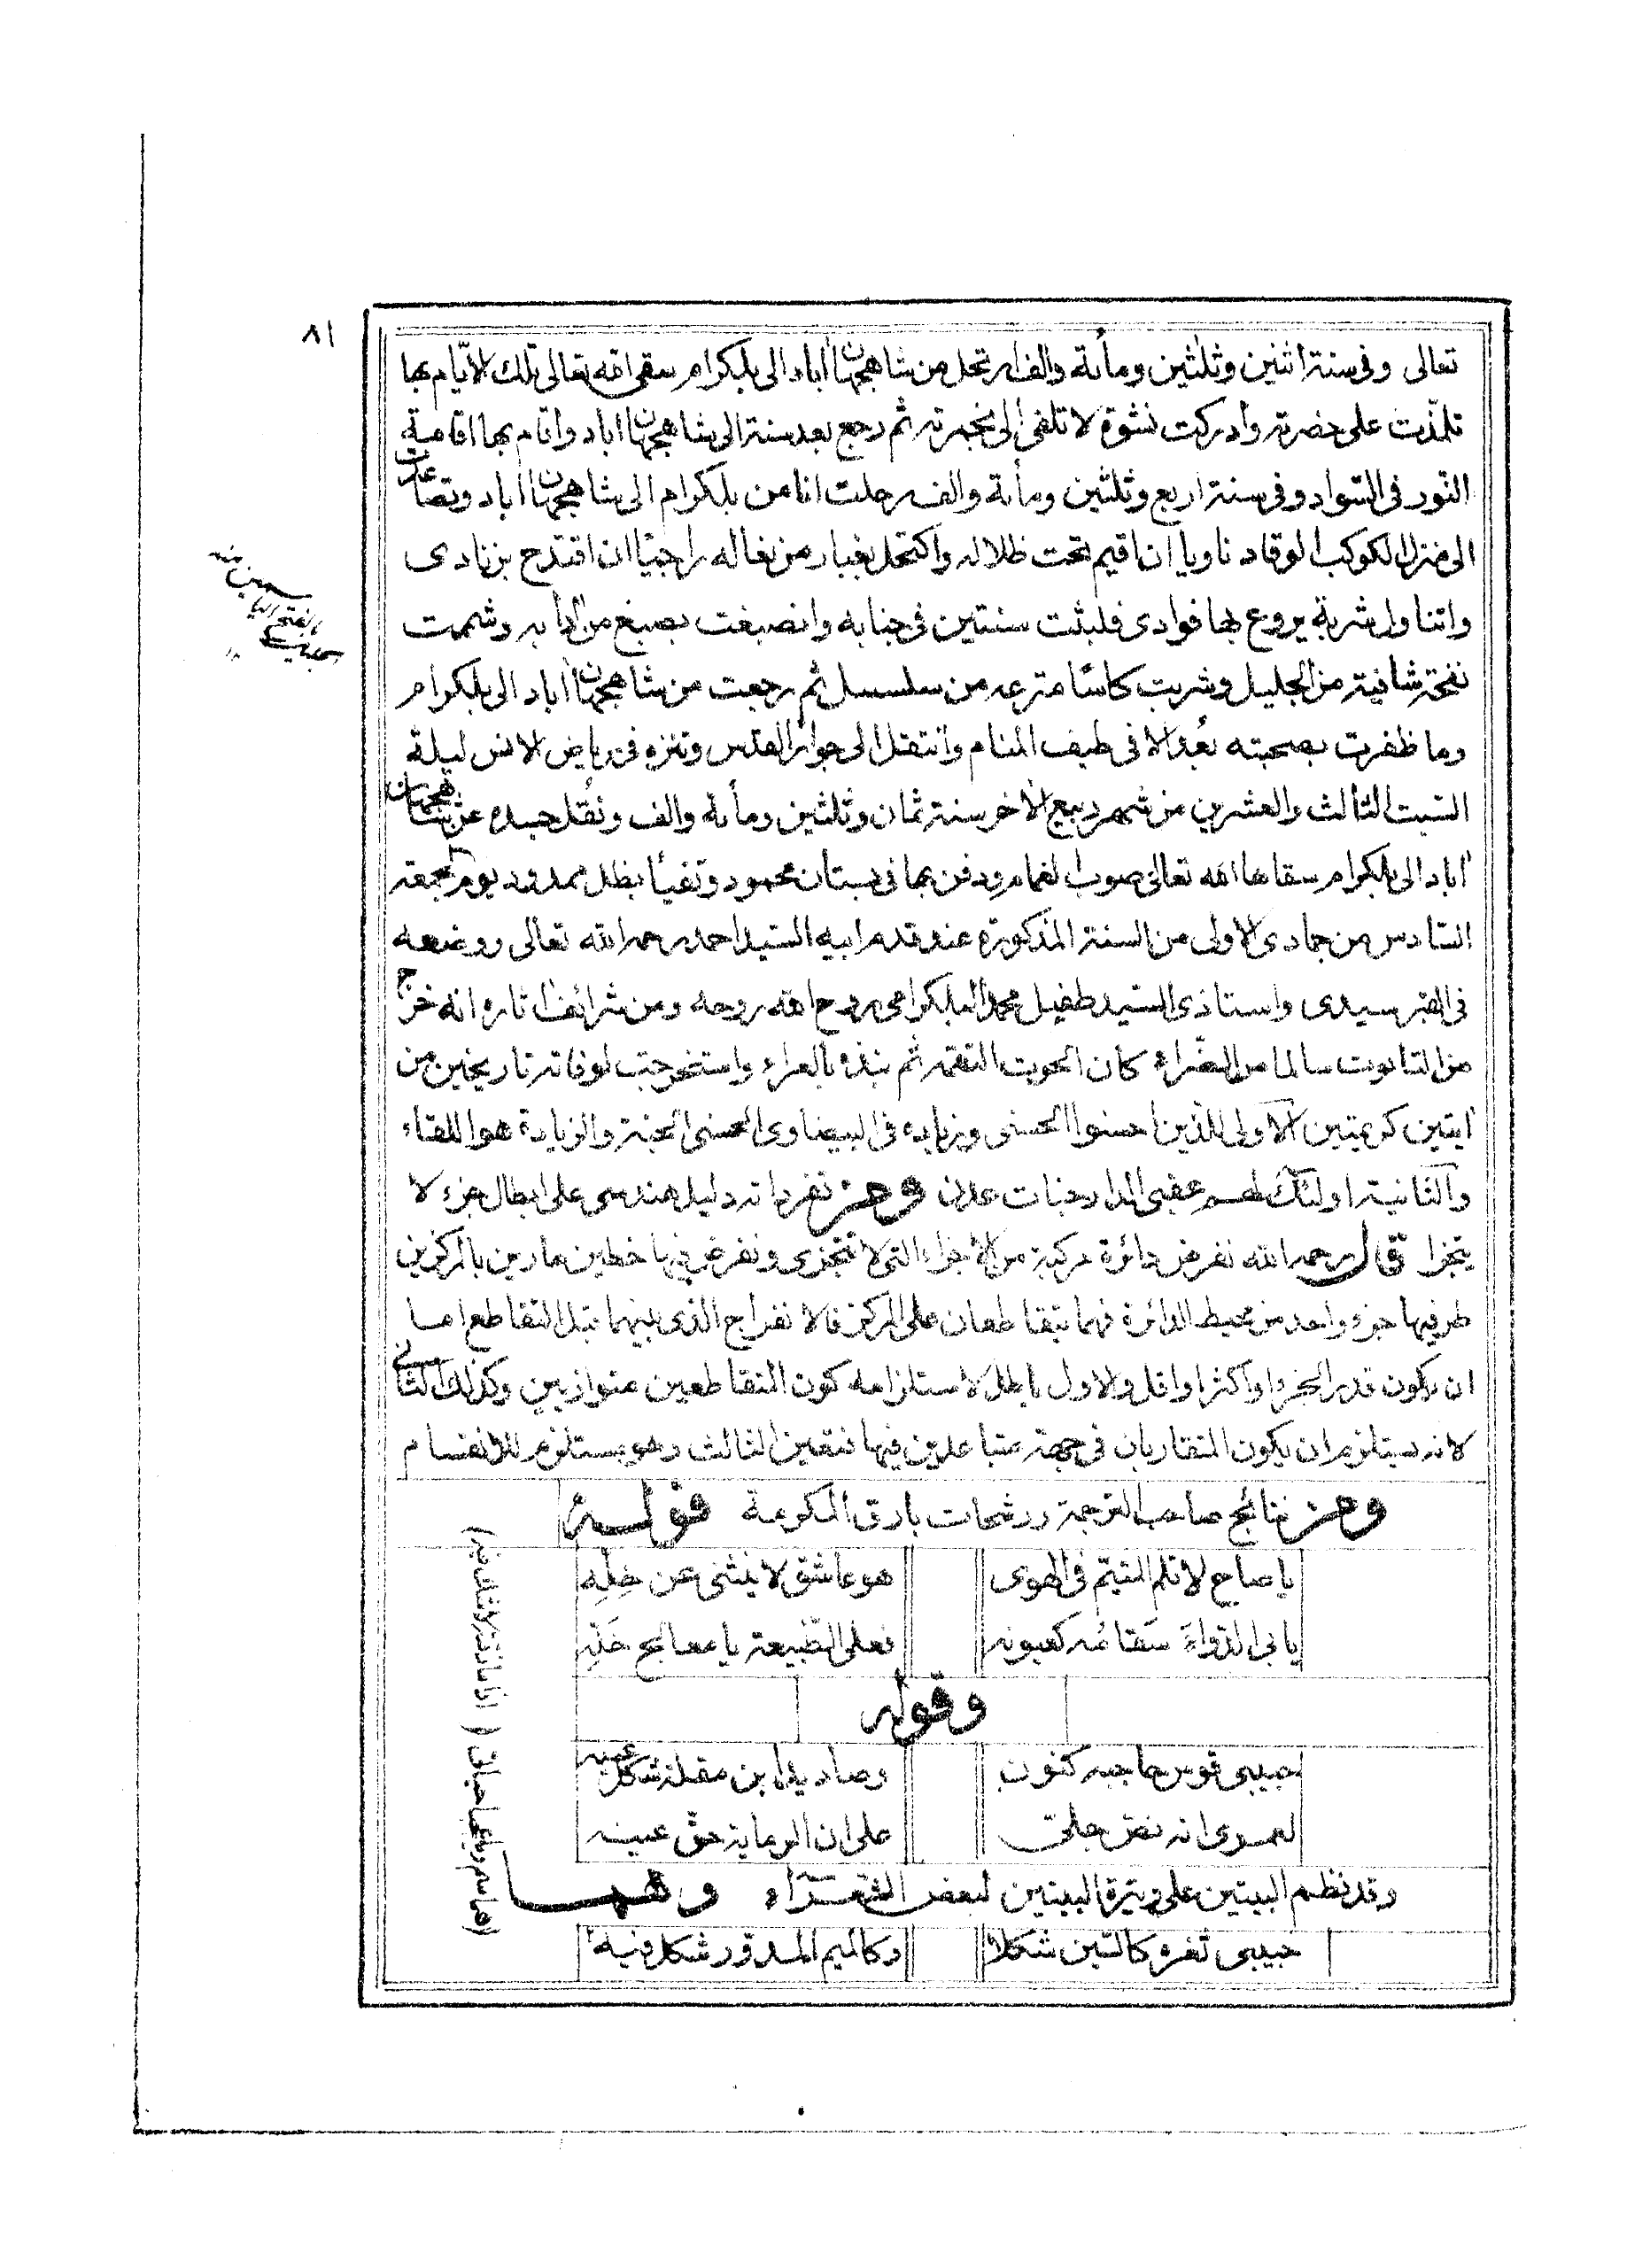 ٨١
تعالى وفى سنة اثنين وثلثين ومأته والف ارتحل من شاهجهان اباد الى بلكرام سقى الله تعالى تلك الايّام بها
تلمّذت على حضرته وأدركت نشوة لا تلفى الى بخمرته ثم رجع بعد سنة الى شاهجهان اباد واقام بها اقامة
النور فى السّواد وفى سنة اربع وثلثين ومأته والف رحلت انا من بلكرام الى شاهجهان اباد وتصاعدت
الى منزل الكوكب الوقاد ناويا ان اقيم تحت ظلاله واكتحل بغبار من نعاله راجيًا ان اقتدح بزنادى
واتناول شربة يروع بها فوادى فلبثت سنتين فى جنابه وانصبغت بصبغ من ادابه وشممت
نفحة شافية من الجليل وشربت كاسًا مترعه من سلسبيل ثم رجعت من شاهجهان اباد الى بلكرام
وما ظفرت بصحبته بُعد الا فى طيف المنام وانتقل الى جوار القدس وتنزه فى رياض الانس ليلة
السّبت الثالث والعشرين من شهر ربيع الأخر سنة ثمان وثلثين ومأته والف ونُقل جسده عن شاهجهان
اباد الى بلكرام سقاها الله تعالى صوب الغمام ودفن بها فى بستان محمود وتفيأ بظل ممدود يوم الجمعة
السّادس من جمادى الاولى من السنة المذكورة عند قدم ابيه السّيد احمد رحمه الله تعالى ووضعه
فى القبر سيدى واستاذى السّيد طفيل محمد البلكرامى روح الله روحه ومن شرائف اثاره انه خرج
من التابوت سالما من الضّراء كأن الحوت التقمه ثم نبذه بالعراء واستخرجت لوفاته تاريخين من
ايتين كريمتين الاولى للذين احسنوا الحسنى وزياده فى البيضاوى الحسنى الجنة والزيادة هو اللقاء
والثانية اولئك لهم عقبى الدار جنات عدن ومن تفرداته دليل هندسى على ابطال جزء لا
يتجزا قال رحمه الله نفرض دائرة مركبة من الاجزاء التى لا تتجزى ونفرض فيها خطين مارين بالمركز بين
طرفيها جزء واحد من محيط الدائرة فهما يتقاطعان على المركز فالانفراج الذى بينهما قبل التقاطع اما
ان يكون قدر الجزء او اكثر او اقل والاول باطل لاستلزامه كون المتقاطعين متوازيين وكذلك الثانى
لانه يستلزم ان يكون المتقاربان فى جهة متباعدين فيها فتعين الثالث وهو يستلزم للانقسام
ومن نتائج صاحب الترجمة ورشحات بارق المكرمة قوله
يا صاح لا تلم المتيّم فى الهوى هو عاشق لا ينثنى عن خِلِّه
يابى الدّواءَ سَقامُه كعيونه فعلى الطّبيعة يا معالج خَلِّه
وقوله
حبيبى قوس حاجبه كنون وصاد يد ابن مقلة شكل عينه
لعمرى انه نص جلىّ على ان الرماية حقّ عينه
وقد نظم البيتين على وتيرة البيتين لبعض الشّعراء وهما
حبيبى ثغره كالسّين شكلا وكالميم المدوّر شكل فيه